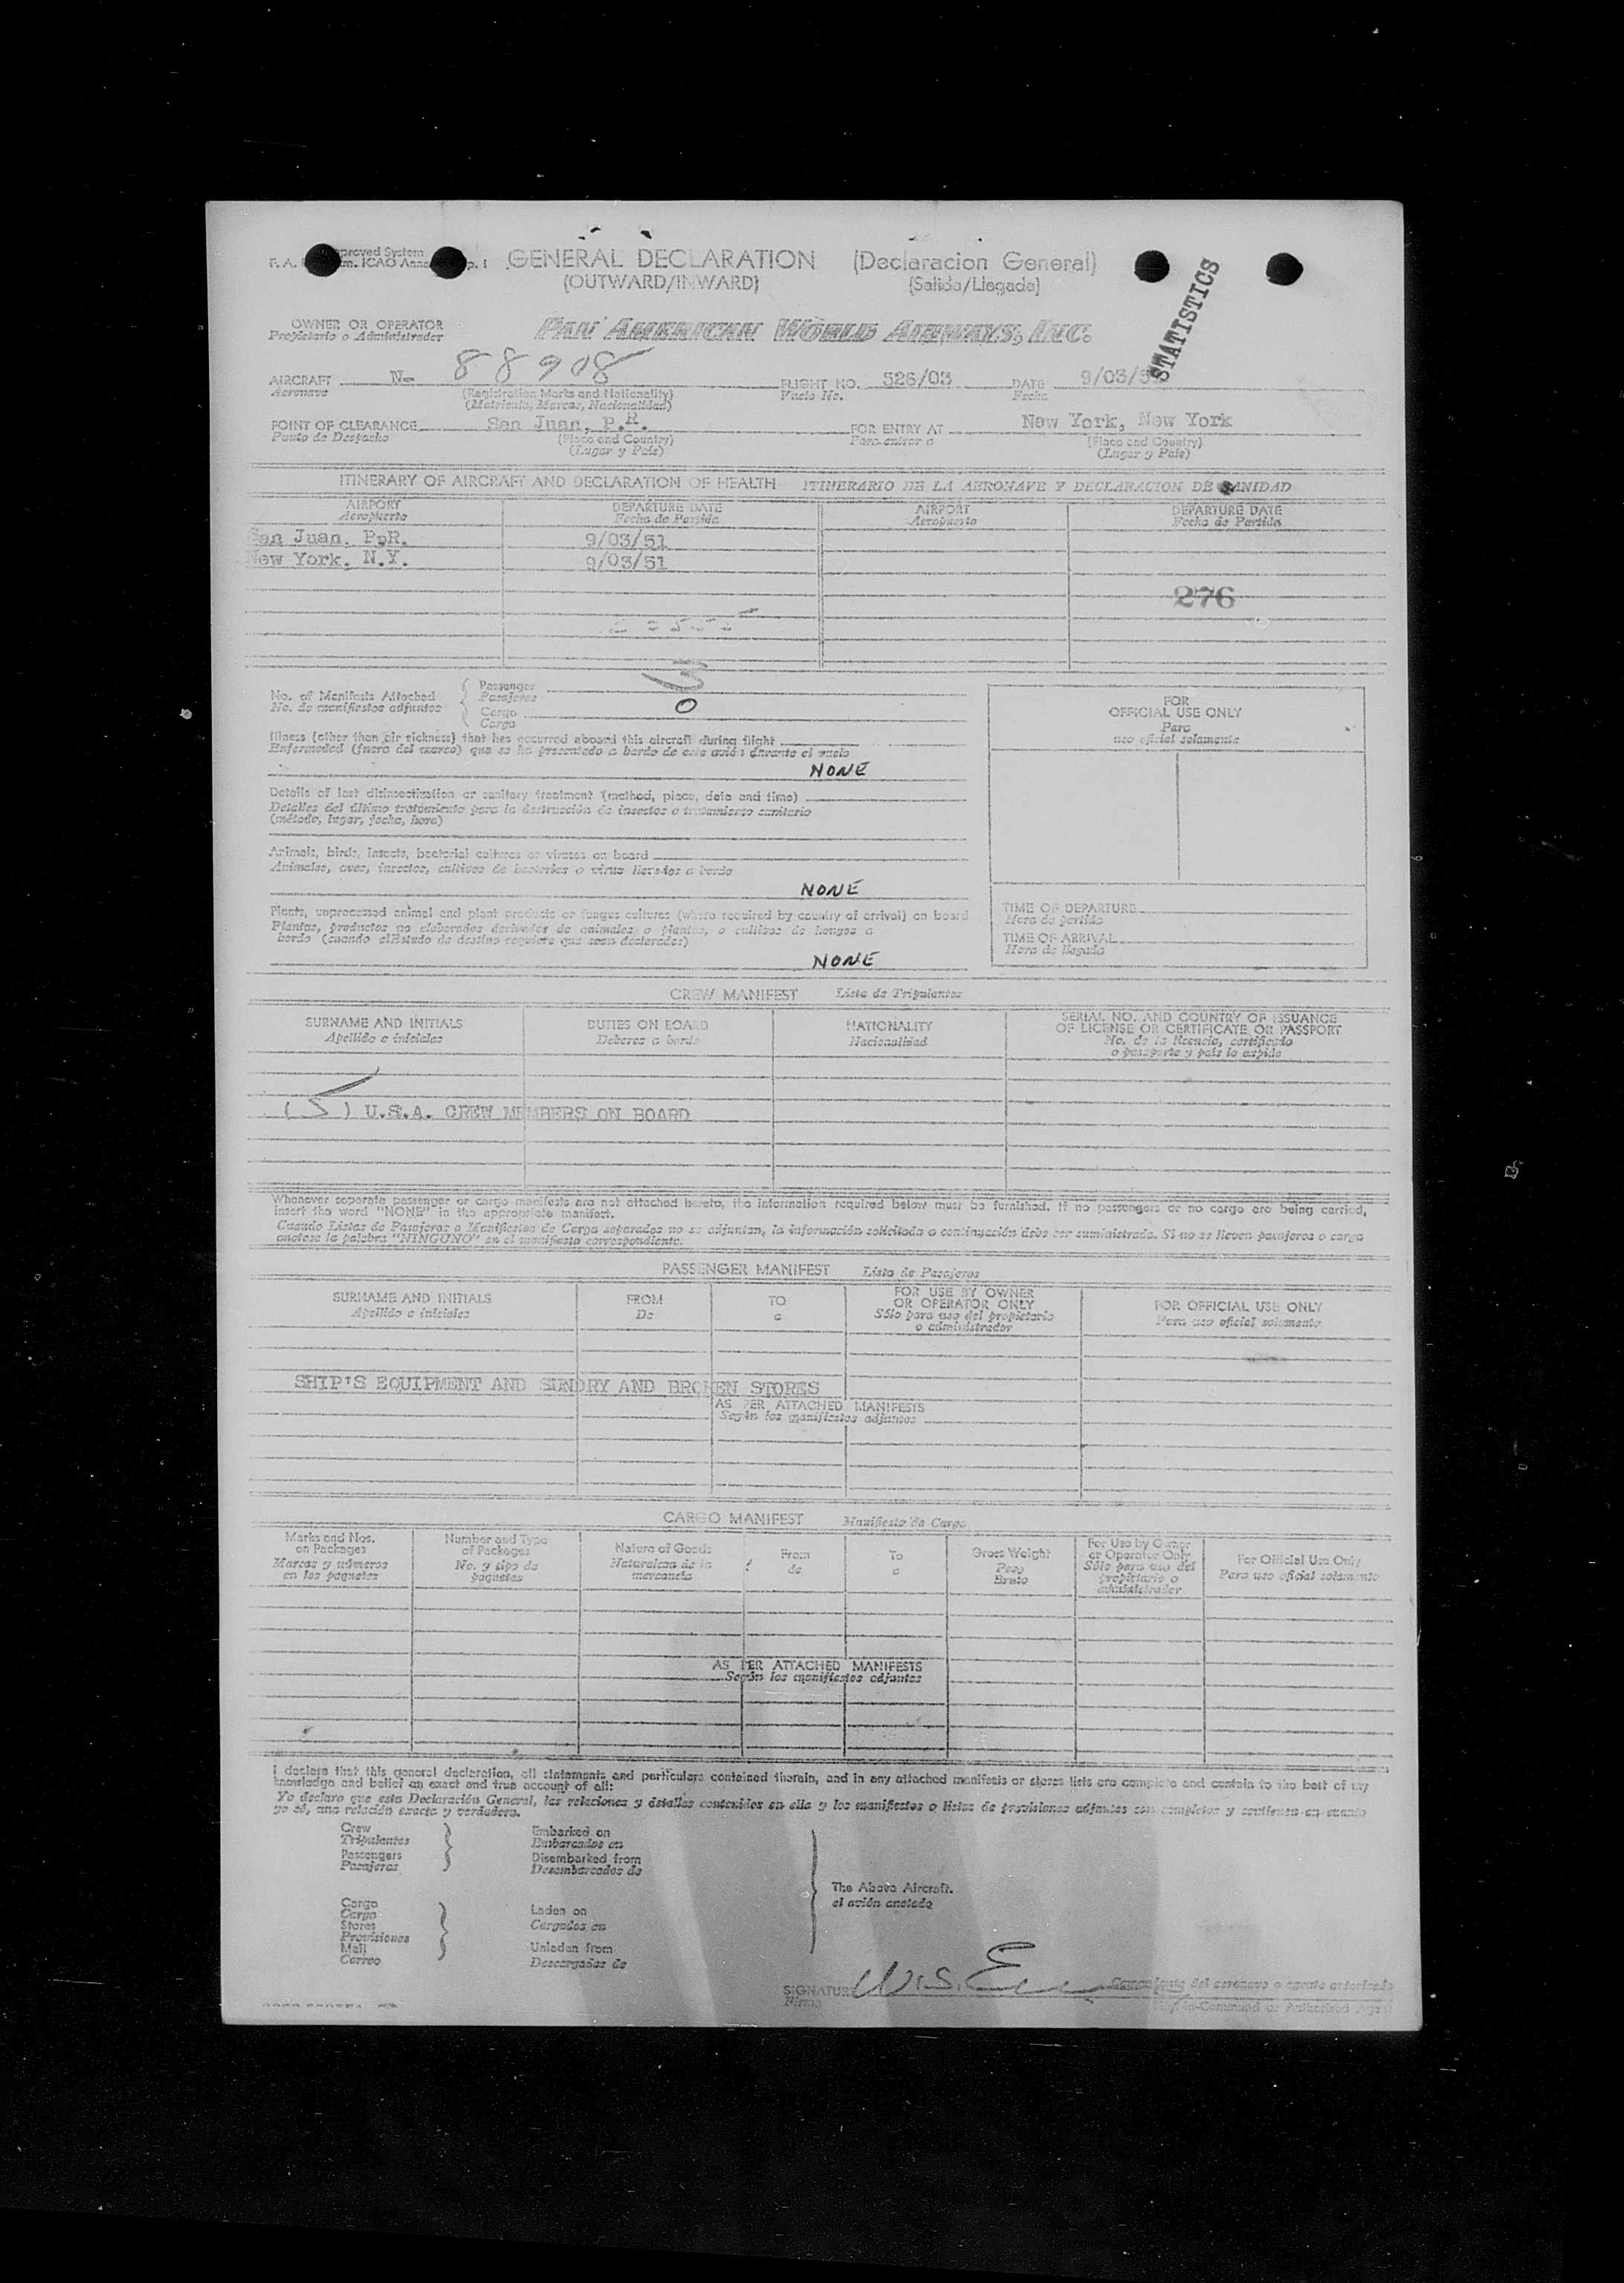 GENERAL DECLARATION (Declaracion General)
(OUTWARD/INWARD) (Salida/Llegada)
STATISTICS
OWNER OR OPERATOR PAN AMERICAN WORLD AIRWAYS, INC.
Propietario o Administrador
AIRCRAFT N- 88908 FLIGHT NO. 526/03 DATE 9/03/51
Aeronave (Registration Marks and Nationality) Vuelo No. Fecha
(Matricula, Marcas, Nacionalidad)
POINT OF CLEARANCE San Juan, P.R. FOR ENTRY AT New York, New York
Punto de Despacho (Place and Country) Para entrar a (Place and Country)
(Lugar y País) (Lugar y País)
ITINERARY OF AIRCRAFT AND DECLARATION OF HEALTH ITINERARIO DE LA AERONAVE Y DECLARACION DE SANIDAD
AIRPORT DEPARTURE DATE AIRPORT DEPARTURE DATE
Aeropuerto Fecha de Partida Aeropuerto Fecha de Partida
San Juan, PpR. 9/03/51
New York, N.Y. 9/03/51
276
No. of Manifests Attached Passenger 3
No. de manifiestos adjuntos Pasajeros
Cargo 0
Carga
FOR
OFFICIAL USE ONLY
Para
uso oficial solamente
Illness (other than air sickness) that has occurred aboard this aircraft during flight
Enfermedad (fuera del mareo) que se ha presentado a bordo de este avión durante el vuelo
NONE
Details of last disinsectization or sanitary treatment (method, place, date and time)
Detalles del último tratamiento para la destrucción de insectos o tratamiento sanitario
(método, lugar, fecha, hora)
Animals, birds, insects, bacterial cultures or viruses on board
Animales, aves, insectos, cultivos de bacterias o virus llevados a bordo
NONE
Plants, unprocessed animal and plant products or fungus cultures (where required by country of arrival) on board
Plantas, productos no elaborados derivados de animales o plantas, o cultivos de hongos a
bordo (cuando elEstado de destino requiera que sean declarados)
NONE
TIME OF DEPARTURE
Hora de partida
TIME OF ARRIVAL
Hora de llegada
CREW MANIFEST Lista de Tripulantes
SURNAME AND INITIALS DUTIES ON BOARD NATIONALITY SERIAL NO. AND COUNTRY OF ISSUANCE
OF LICENSE OR CERTIFICATE OR PASSPORT
Apellido e iniciales Deberes a bordo Nacionalidad No. de la licencia, certificado
o pasaporte y país lo expide
(5) U.S.A. CREW MEMBERS ON BOARD
Whenever separate passenger or cargo manifests are not attached hereto, the information required below must be furnished. If no passengers or no cargo are being carried,
insert the word "NONE" in the appropriate manifest.
Cuando Listas de Pasajeros o Manifiestos de Carga separados no se adjuntan, la información solicitada a continuación debe ser suministrada. Si no se lleven pasajeros o carga
anótese la palabra "NINGUNO" en el manifiesto correspondiente.
PASSENGER MANIFEST Lista de Pasajeros
SURNAME AND INITIALS FROM TO FOR USE BY OWNER OR OPERATOR ONLY FOR OFFICIAL USE ONLY
Apellido e iniciales De a Sólo para uso del propietario o administrador Para uso oficial solamente
SHIP'S EQUIPMENT AND SUNDRY AND BROKEN STORES
AS PER ATTACHED MANIFESTS
Según los manifiestos adjuntos
CARGO MANIFEST Manifiesto de Carga
Marks and Nos. on Packages Number and Type of Packages Nature of Goods From To Gross Weight For Use by Owner or Operator Only For Official Use Only
Marcas y números en los paquetes No. y tipo de paquetes Naturaleza de la mercancía de a Peso Bruto Sólo para uso del propietario o administrador Para uso oficial solamente
AS PER ATTACHED MANIFESTS
Según los manifiestos adjuntos
I declare that this general declaration, all statements and particulars contained therein, and in any attached manifests or stores lists are complete and contain to the best of my
knowledge and belief an exact and true account of all:
Yo declaro que esta Declaración General, las relaciones y detalles contenidos en ella y los manifiestos o listas de provisiones adjuntos son completos y contienen en cuanto
yo sé, una relación exacta y verdadera.
Crew Embarked on
Tripulantes Embarcados en
Passengers Disembarked from
Pasajeros Desembarcados de
The Above Aircraft.
el avión anotado
Cargo Laden on
Carga Cargados en
Stores
Provisiones
Mail Unladen from
Correo Descargados de
SIGNATURE W.S. Comandante del aeronave o agente autorizado
Firma Pilot-in-Command or Authorized Agent